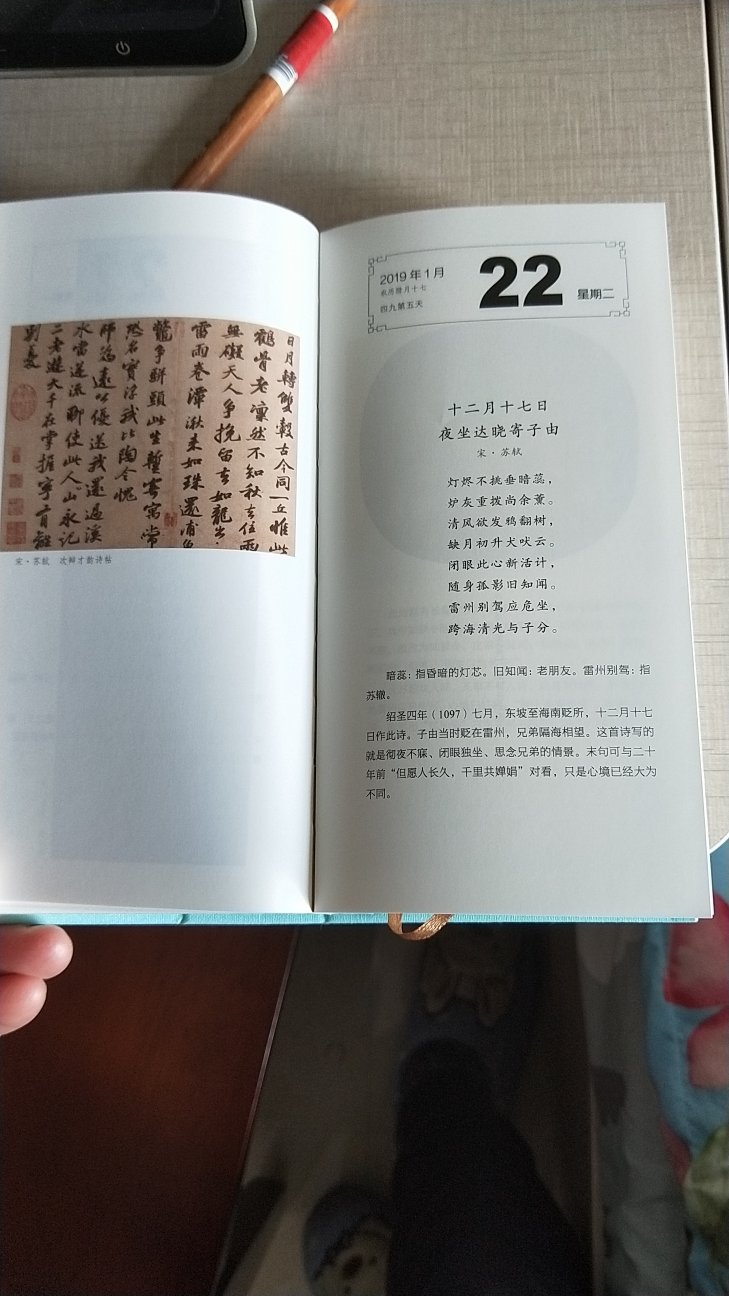 日月轉雙轂古今同一丘惟此
鶴骨老凛然不知秋去住兩
無礙天人争挽留去如龍出
雷雨卷潭湫来如珠還浦魚
鼈争駢頭此生暫寄寓常
恐名實浮我比陶令愧
師為遠公優送我還過溪
水當逆流聊使此山人永記
二老遊大千在掌握寧有離
別憂
宋·苏轼 次辩才韵诗帖
2019年1月
农历腊月十七
四九第五天
22
星期二
十二月十七日
夜坐达晓寄子由
宋·苏轼
灯烬不挑垂暗蕊，
炉灰重拨尚余薰。
清风欲发鸦翻树，
缺月初升犬吠云。
闭眼此心新活计，
随身孤影旧知闻。
雷州别驾应危坐，
跨海清光与子分。
暗蕊：指昏暗的灯芯。旧知闻：老朋友。雷州别驾：指
苏辙。
绍圣四年（1097）七月，东坡至海南贬所，十二月十七
日作此诗。子由当时贬在雷州，兄弟隔海相望。这首诗写的
就是彻夜不寐、闭眼独坐、思念兄弟的情景。末句可与二十
年前“但愿人长久，千里共婵娟”对看，只是心境已经大为
不同。